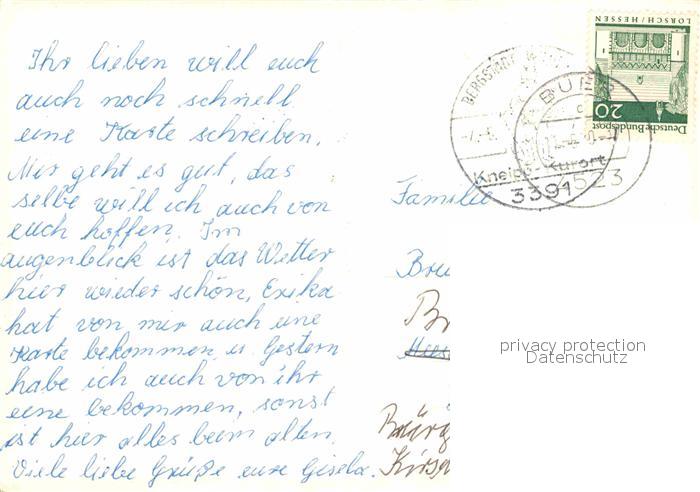 Ihr lieben will euch
auch noch schnell
eine Karte schreiben.
Mir geht es gut, das
selbe will ich auch von
euch hoffen. Im
augenblick ist das Wetter
hier wieder schön, Erika
hat von mir auch eine
Karte bekommen u. Gestern
habe ich auch von ihr
eine bekommen, sonst
ist hier alles beim alten.
Viele liebe Grüße eure Gisela.
LORSCH/HESSEN
Deutsche Bundespost
20
BERGSTADT
Kneipp-Kurort
3391
4523
Familie
privacy protection
Datenschutz